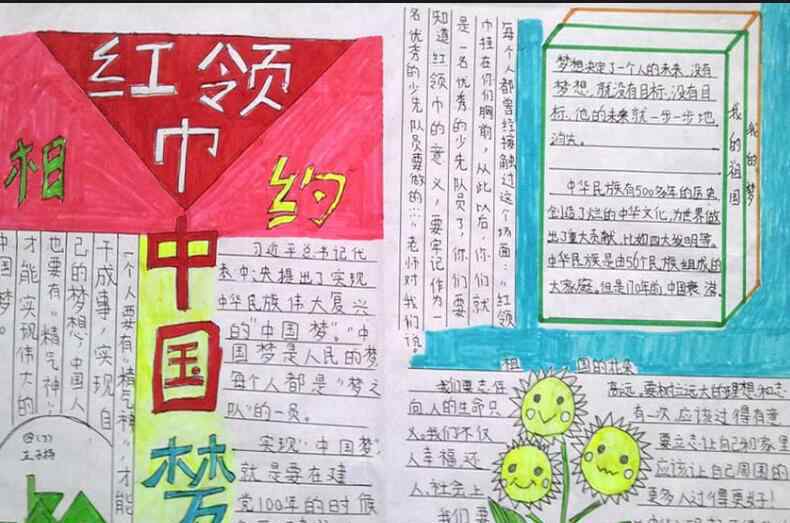 红领
巾
相
约
中
国
梦
习近平总书记代
表中央提出了实现
中华民族伟大复兴
的"中国梦"。"中
国梦是人民的梦
每个人都是"梦之
队"的一员。
实现"中国梦",
就是要在建
党100年的时候
一个人要有"精气神",才能
干成事,实现自
己的梦想,中国人
也要有"精气神"
才能实现伟大的
中国梦。
每个人都曾经接触过这个场面:"红领
巾挂在你们胸前,从此以后,你们就
是一名优秀的少先队员了,你们要
知道红领巾的意义,要牢记作为一
名优秀的少先队员要做的……"老师对我们说。
梦想决定了一个人的未来,没有
梦想,就没有目标,没有目
标,他的未来就一步一步地
消失。
中华民族有500多年的历史,
创造了灿烂的中华文化,为世界做
出了重大贡献,比如四大发明等。
中华民族是由56个民族组成的
大家庭。但是170年的中国衰落
我的祖国
我的梦
祖国的花朵
我们要志存
高远。要树立远大的理想和志
向人的生命只
有一次,应该过得有意
义。我们不仅
要立志让自己和家里
人幸福,还
应该让自己周围的
人、社会上
更多人过得更好!
我们要